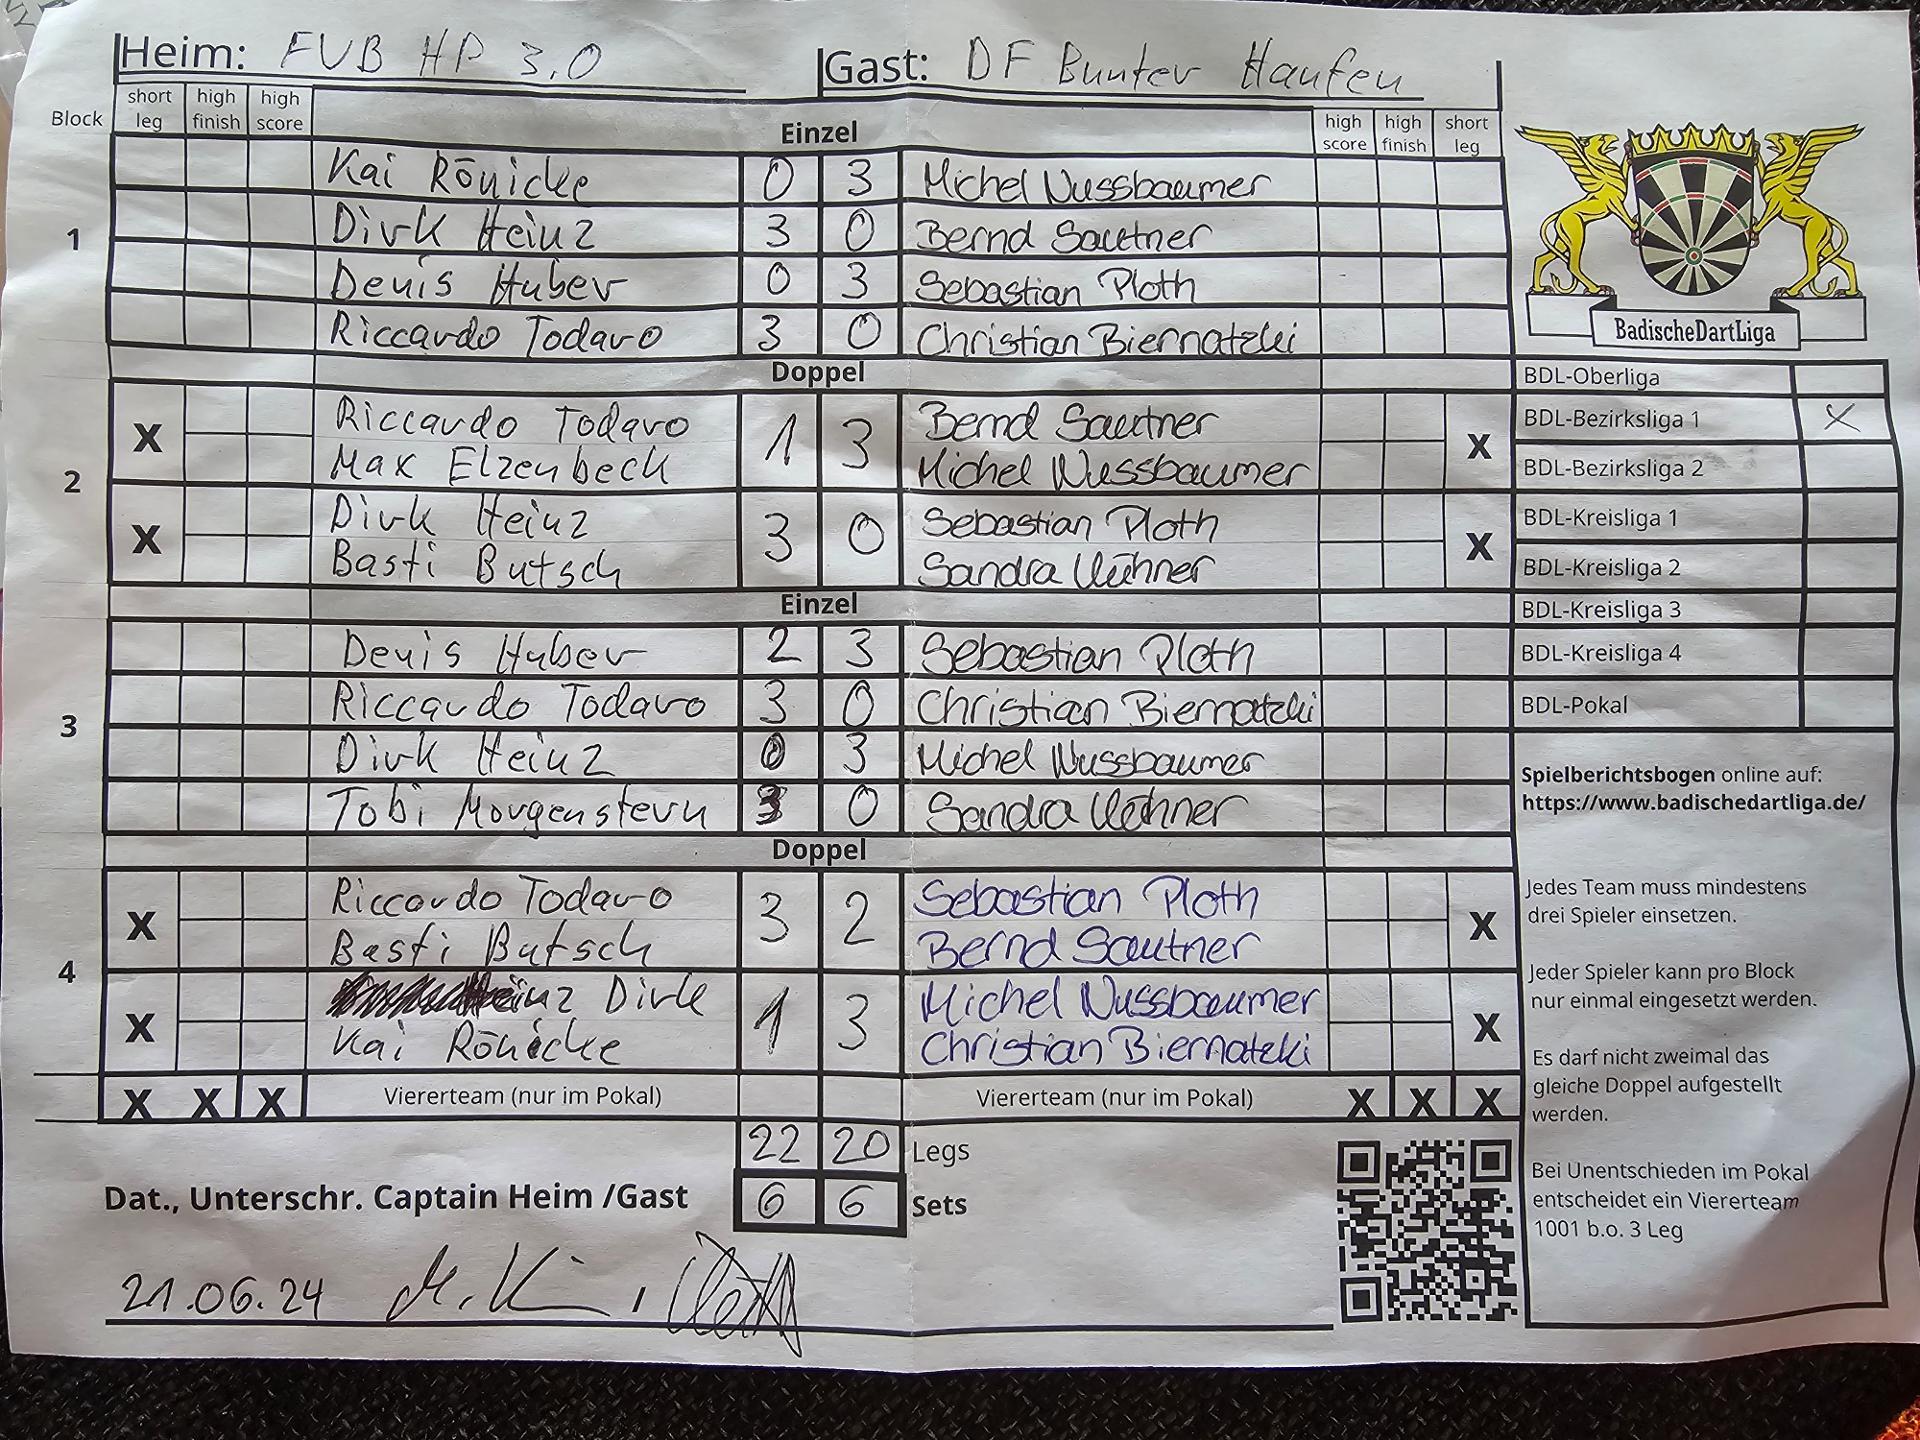 Heim: FVB HP 3.0 Gast: DF Bunter Haufen
Block short leg high finish high score Einzel high score high finish short leg
1
Kai Rönicke 0 3 Michel Nussbaumer
Dirk Heinz 3 0 Bernd Sautner
Denis Huber 0 3 Sebastian Ploth
Riccardo Todaro 3 0 Christian Biernatzki
Doppel
2
X Riccardo Todaro 1 3 Bernd Sautner X
Max Elzenbeck Michel Nussbaumer
X Dirk Heinz 3 0 Sebastian Ploth X
Basti Butsch Sandra Kühner
Einzel
3
Denis Huber 2 3 Sebastian Ploth
Riccardo Todaro 3 0 Christian Biernatzki
Dirk Heinz 0 3 Michel Nussbaumer
Tobi Morgenstern 3 0 Sandra Kühner
Doppel
4
X Riccardo Todaro 3 2 Sebastian Ploth X
Basti Butsch Bernd Sautner
X Heinz Dirk 1 3 Michel Nussbaumer X
Kai Rönicke Christian Biernatzki
X X X Viererteam (nur im Pokal) Viererteam (nur im Pokal) X X X
22 20 Legs
Dat., Unterschr. Captain Heim /Gast 6 6 Sets
21.06.24
BadischeDartLiga
BDL-Oberliga
BDL-Bezirksliga 1 X
BDL-Bezirksliga 2
BDL-Kreisliga 1
BDL-Kreisliga 2
BDL-Kreisliga 3
BDL-Kreisliga 4
BDL-Pokal
Spielberichtsbogen online auf:
https://www.badischedartliga.de/
Jedes Team muss mindestens
drei Spieler einsetzen.
Jeder Spieler kann pro Block
nur einmal eingesetzt werden.
Es darf nicht zweimal das
gleiche Doppel aufgestellt
werden.
Bei Unentschieden im Pokal
entscheidet ein Viererteam
1001 b.o. 3 Leg